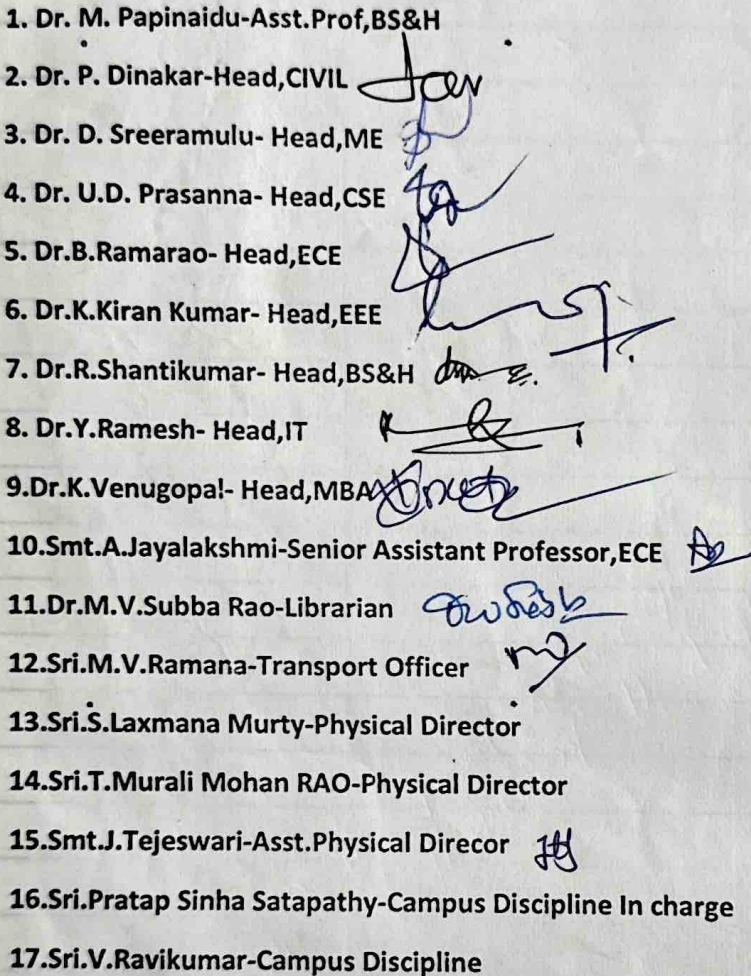 1. Dr. M. Papinaidu-Asst.Prof,BS&H
2. Dr. P. Dinakar-Head,CIVIL
3. Dr. D. Sreeramulu- Head,ME
4. Dr. U.D. Prasanna- Head,CSE
5. Dr.B.Ramarao- Head,ECE
6. Dr.K.Kiran Kumar- Head,EEE
7. Dr.R.Shantikumar- Head,BS&H
8. Dr.Y.Ramesh- Head,IT
9.Dr.K.Venugopal- Head,MBA
10.Smt.A.Jayalakshmi-Senior Assistant Professor,ECE
11.Dr.M.V.Subba Rao-Librarian
12.Sri.M.V.Ramana-Transport Officer
13.Sri.S.Laxmana Murty-Physical Director
14.Sri.T.Murali Mohan RAO-Physical Director
15.Smt.J.Tejeswari-Asst.Physical Direcor
16.Sri.Pratap Sinha Satapathy-Campus Discipline In charge
17.Sri.V.Ravikumar-Campus Discipline